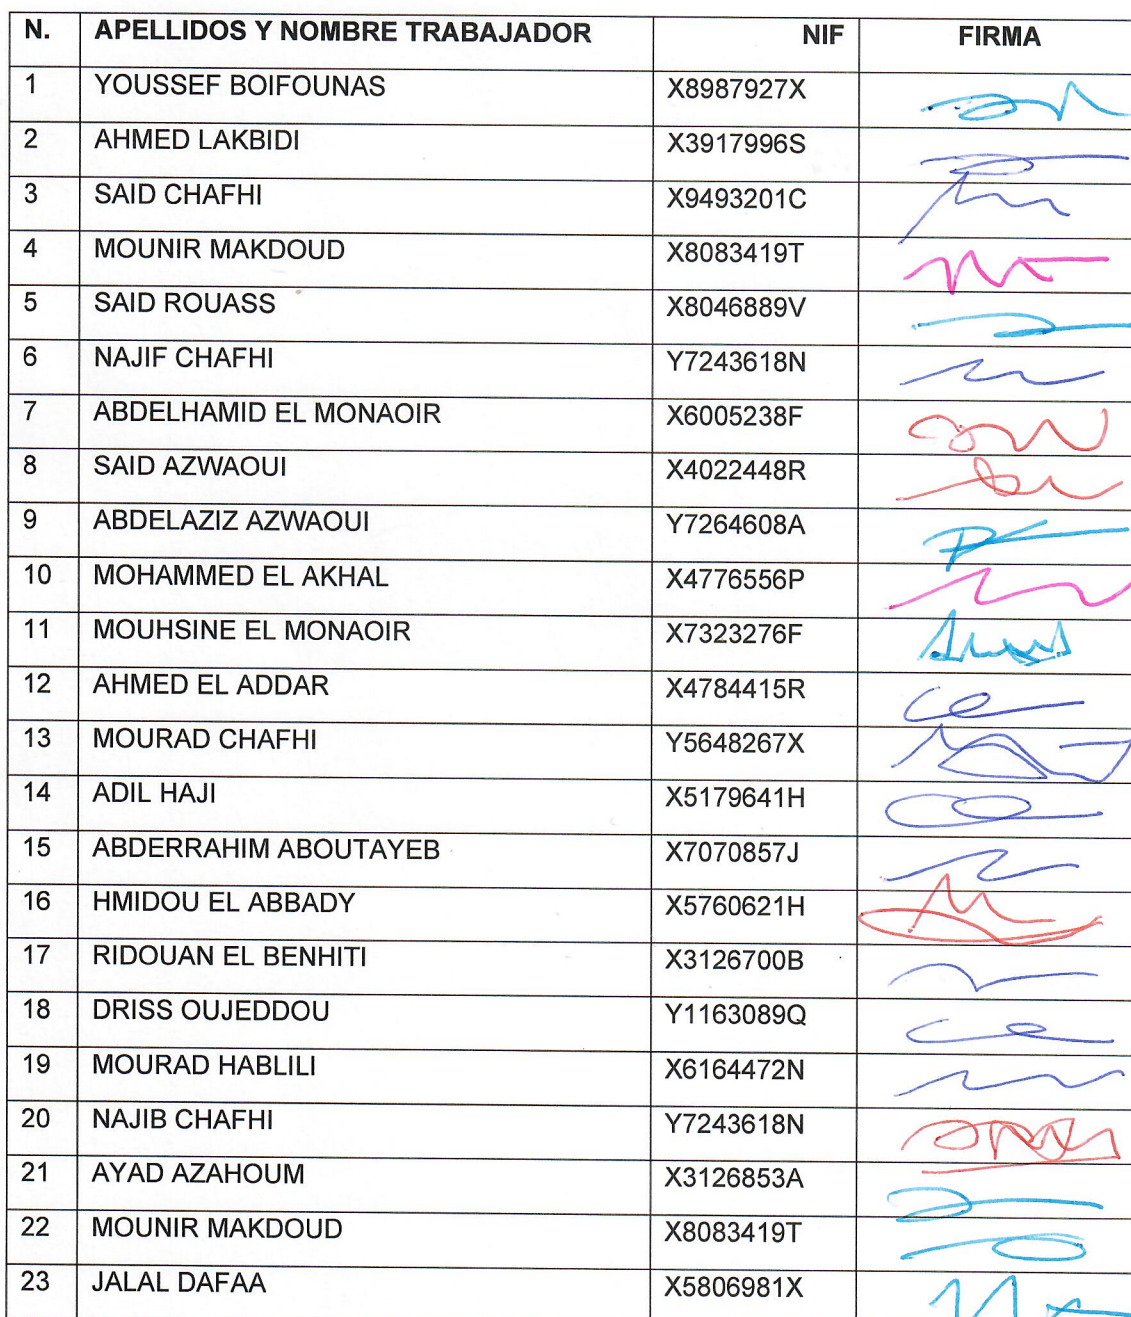 N. APELLIDOS Y NOMBRE TRABAJADOR NIF FIRMA
1 YOUSSEF BOIFOUNAS X8987927X
2 AHMED LAKBIDI X3917996S
3 SAID CHAFHI X9493201C
4 MOUNIR MAKDOUD X8083419T
5 SAID ROUASS X8046889V
6 NAJIF CHAFHI Y7243618N
7 ABDELHAMID EL MONAOIR X6005238F
8 SAID AZWAOUI X4022448R
9 ABDELAZIZ AZWAOUI Y7264608A
10 MOHAMMED EL AKHAL X4776556P
11 MOUHSINE EL MONAOIR X7323276F
12 AHMED EL ADDAR X4784415R
13 MOURAD CHAFHI Y5648267X
14 ADIL HAJI X5179641H
15 ABDERRAHIM ABOUTAYEB X7070857J
16 HMIDOU EL ABBADY X5760621H
17 RIDOUAN EL BENHITI X3126700B
18 DRISS OUJEDDOU Y1163089Q
19 MOURAD HABLILI X6164472N
20 NAJIB CHAFHI Y7243618N
21 AYAD AZAHOUM X3126853A
22 MOUNIR MAKDOUD X8083419T
23 JALAL DAFAA X5806981X